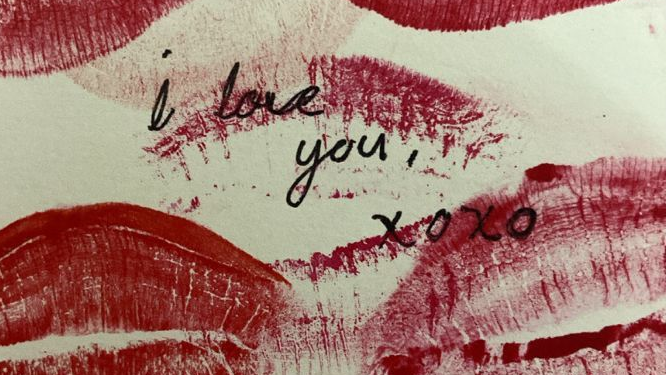 i love
you,
xoxo